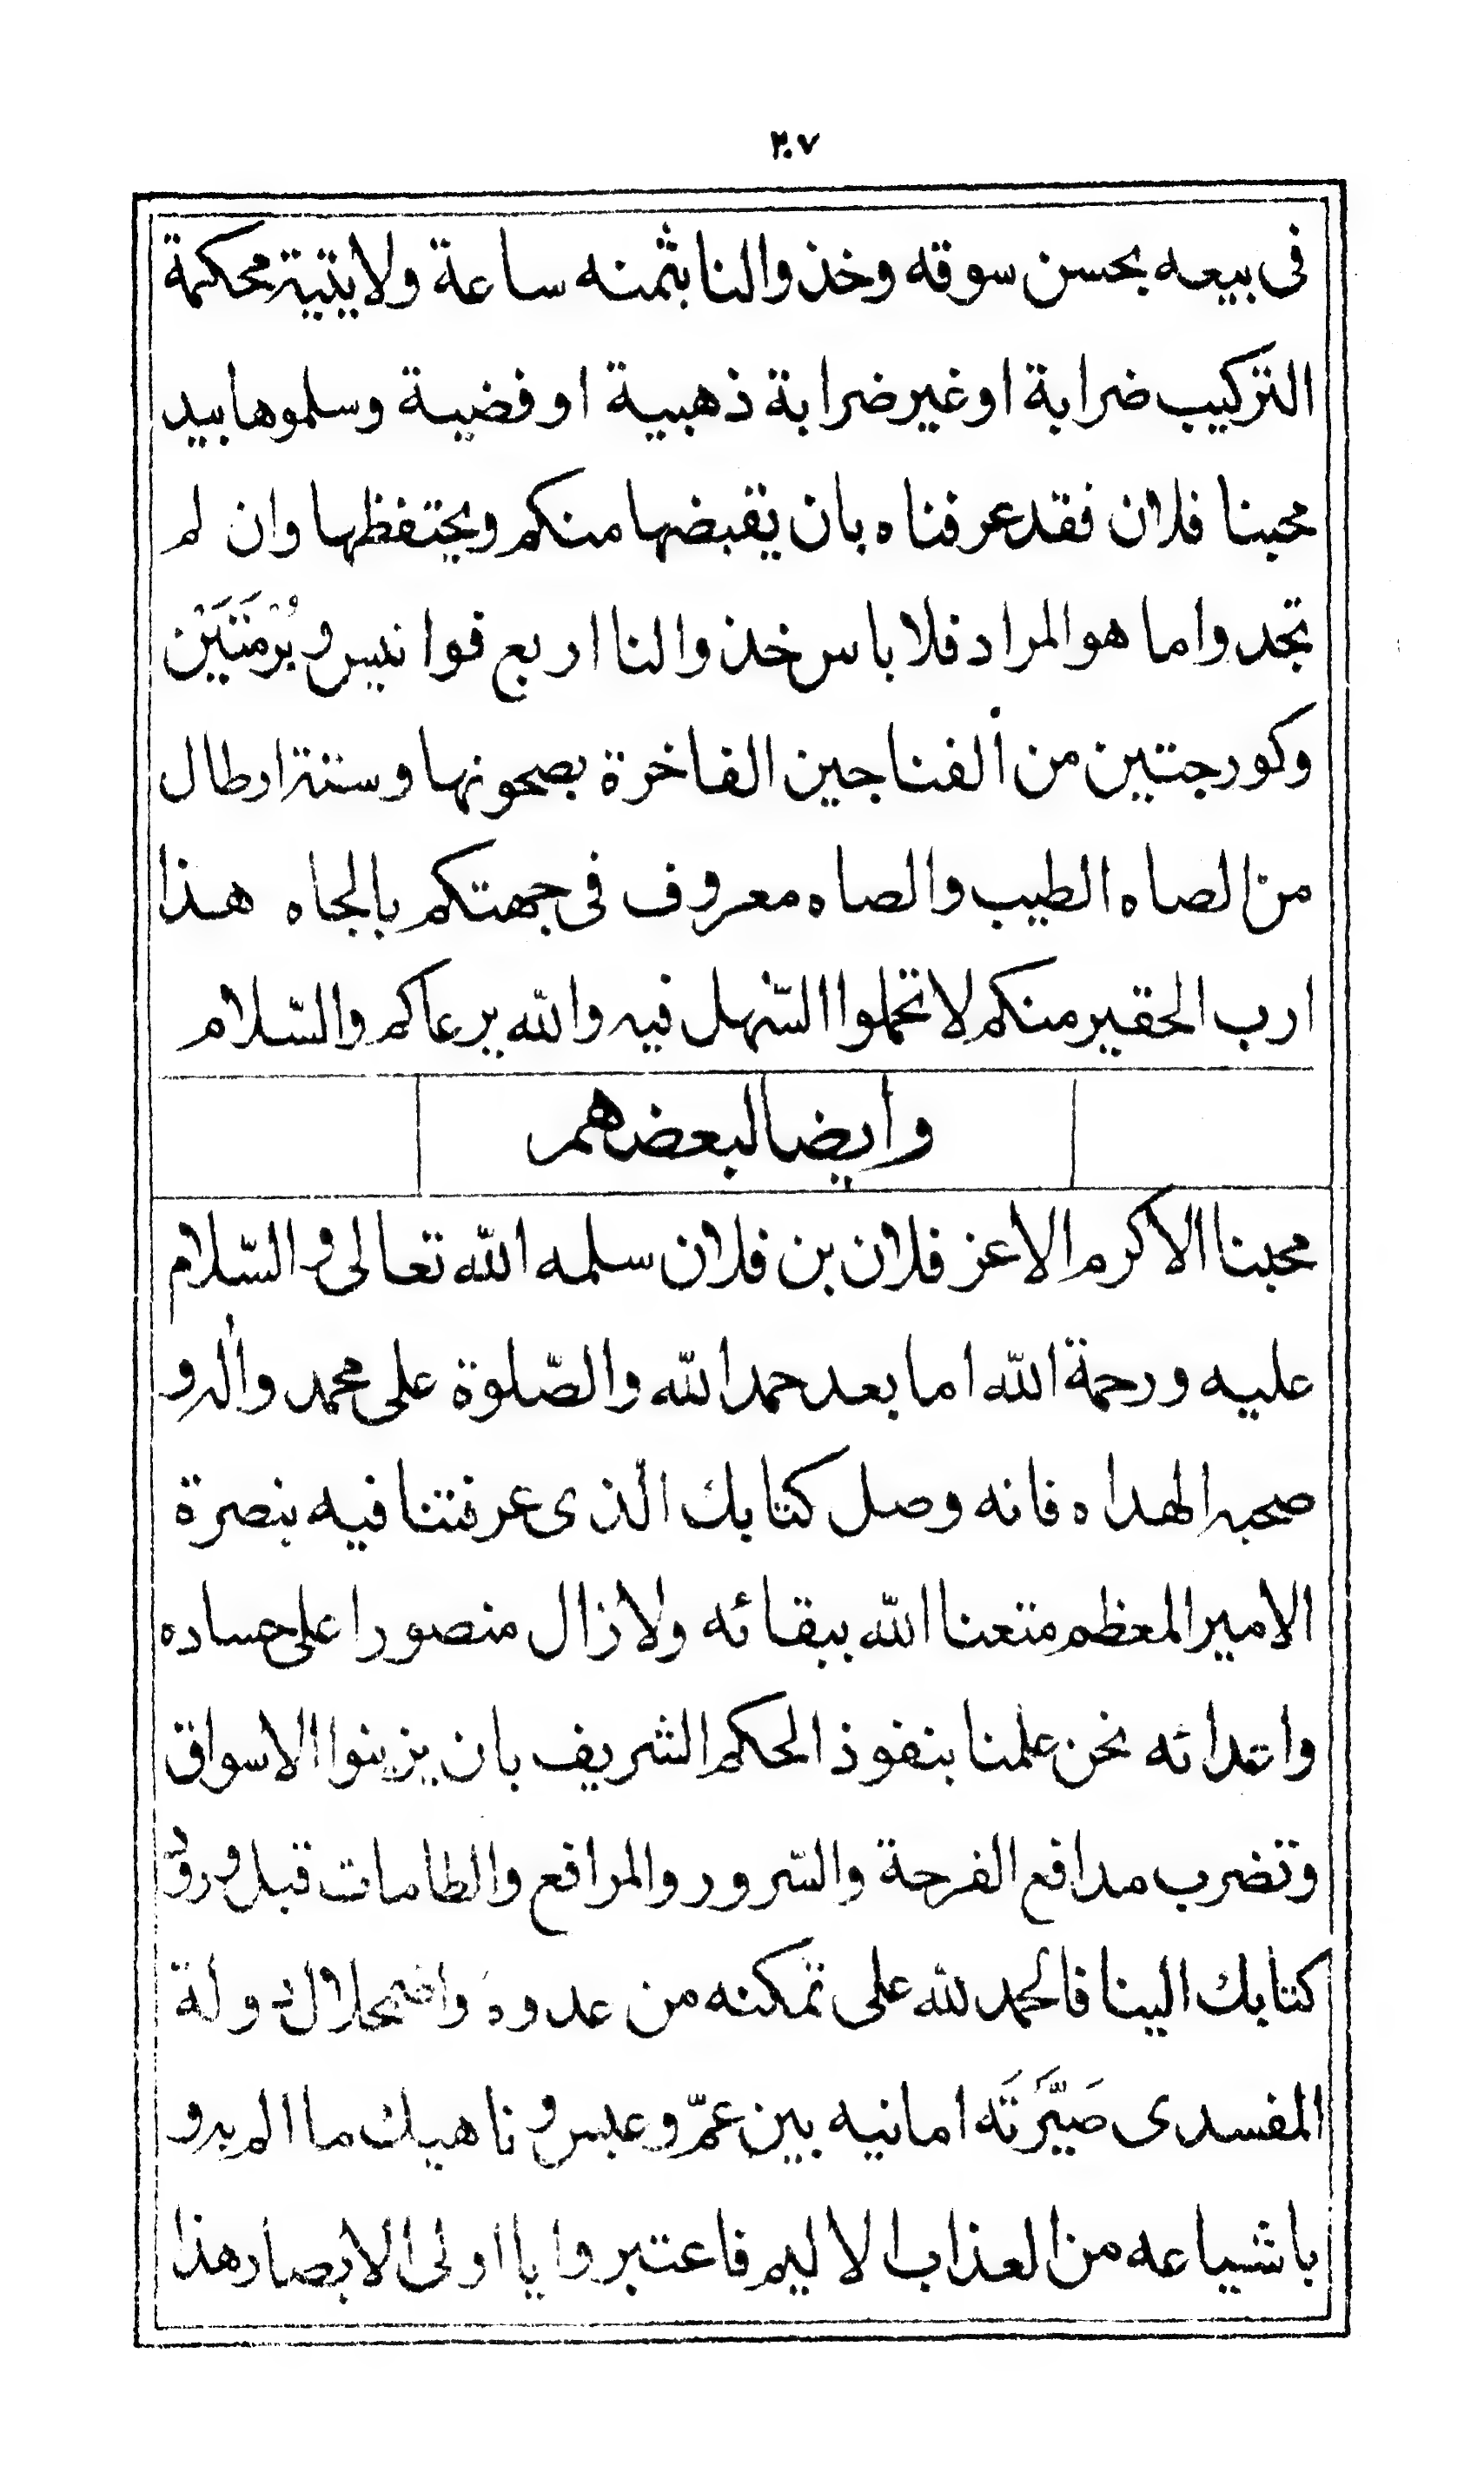 ٢٠٧
فى بيعه بحسن سوقه وخذ والنا بثمنه ساعة ولايتية محكمة
التركيب ضرابة او غير ضرابة ذهبية او فضية وسلموها بيد
محبنا فلان فقد عرفناه بان يقبضها منكم ويحتفظها وان لم
تجدوا ما هو المراد فلا باس خذ والنا اربع فوانيس وبُرْمَتَيْن
وكورجتين من الفناجين الفاخرة بصحونها وستة ارطال
من الصاه الطيب والصاه معروف فى جهتكم بالجاه هذا
ارب الحقير منكم لا تحملوا السّهل فيه والله يرعاكم والسّلام
وايضا لبعضهم
محبنا الاكرم الاعز فلان بن فلان سلمه الله تعالى والسّلام
عليه ورحمة الله اما بعد حمد الله والصّلوة على محمد واله و
صحبه الهداه فانه وصل كتابك الّذى عرفتنا فيه بنصرة
الامير المعظم متعنا الله ببقائه ولا زال منصورا على حساده
واعدائه نحن علمنا بنفوذ الحكم الشريف بان يزينوا الاسواق
وتضرب مدافع الفرحة والسّرور والمرافع والطامات قبل ورود
كتابك الينا فالحمد لله على تمكنه من عدوه واضمحلال دولة
المفسدى صَيَّرَتَه امانيه بين عمّ وعبس وناهيك ما الم به و
باشياعه من العذاب الاليم فاعتبروا يا اولى الابصار هذا